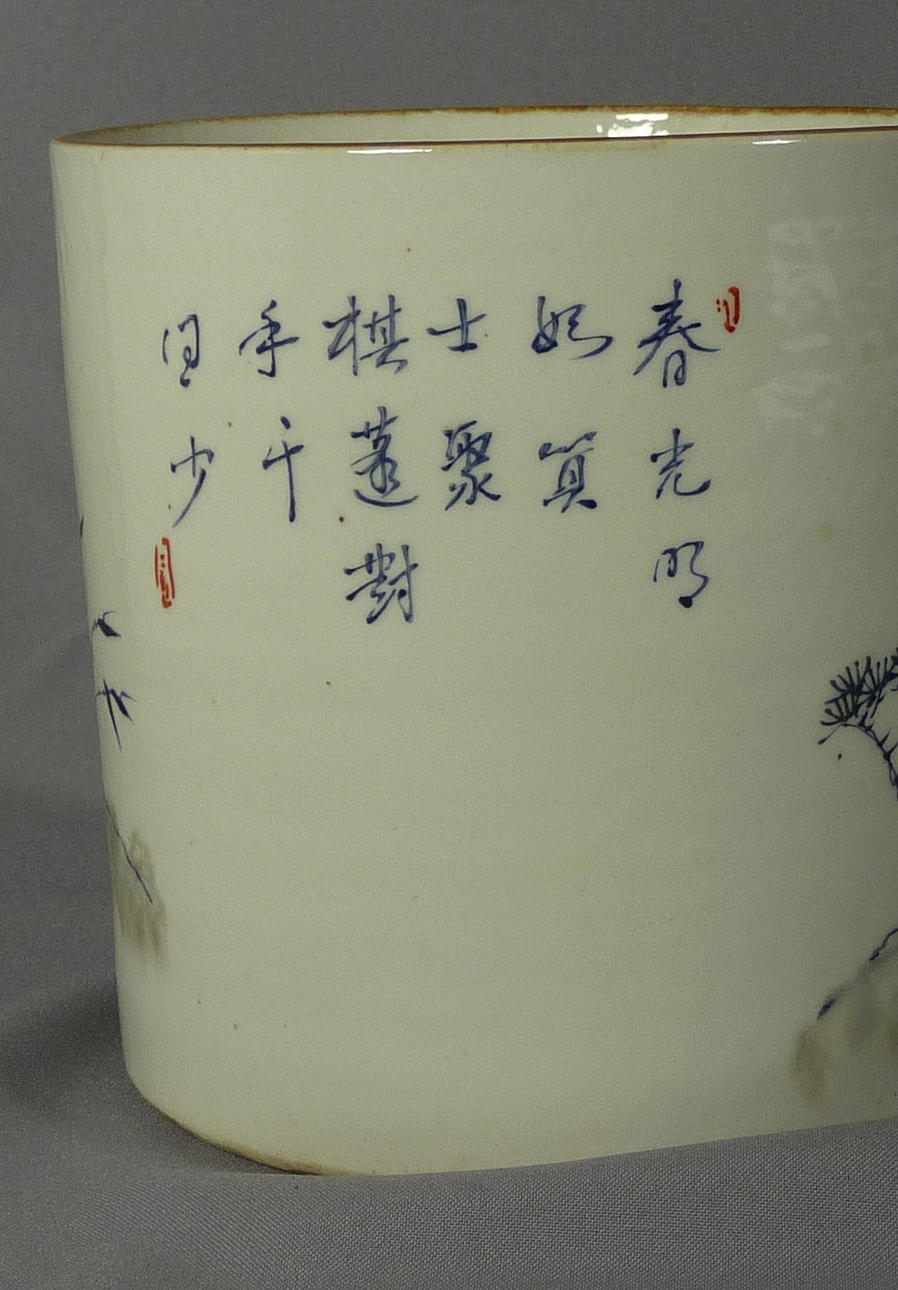 春光明
如算
士聚
棋逢對
手千
日少